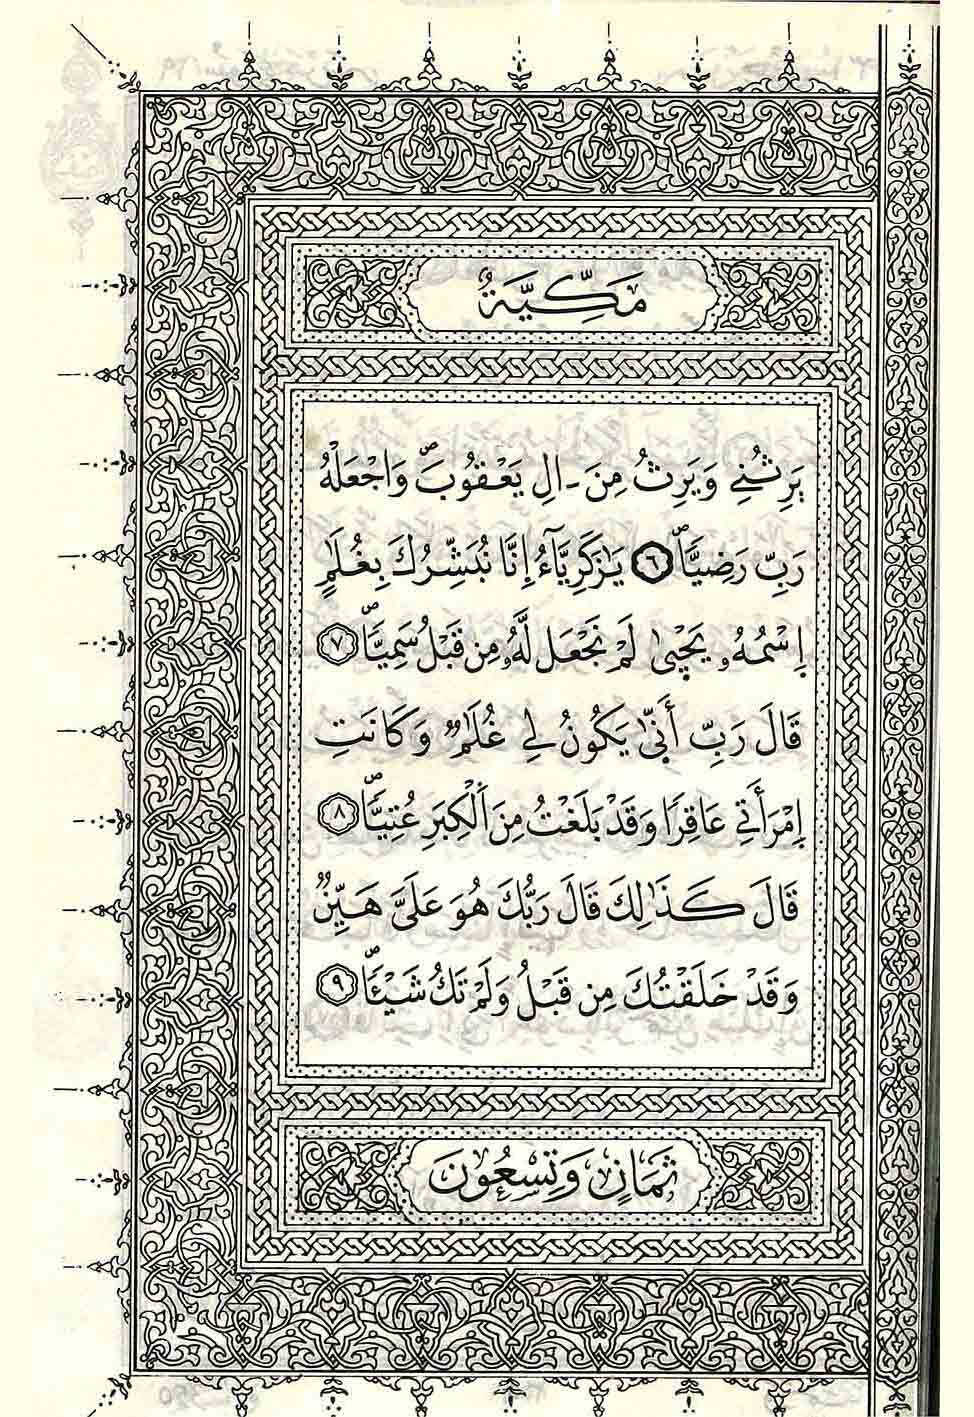 مَكِّيَّةٌ
يَرِثُنِے وَيَرِثُ مِنَ ـ الِ يَعْقُوبَۖ وَاجْعَلْهُ
رَبِّ رَضِيّاًۖ ٦ يَٰزَكَرِيَّآءُ انَّا نُبَشِّرُكَ بِغُلَٰمٍ
اِسْمُهُۥ يَحْيٜىٰ لَمْ نَجْعَل لَّهُۥ مِن قَبْلُ سَمِيّاًۖ ٧
قَالَ رَبِّ أَنّٜىٰ يَكُونُ لِے غُلَٰمٌ وَكَانَتِ
اِمْرَأَتِے عَاقِراً وَقَدْ بَلَغْتُ مِنَ اَلْكِبَرِ عُتِيّاًۖ ٨
قَالَ كَذَٰلِكَ قَالَ رَبُّكَ هُوَ عَلَيَّ هَيِّنٌ
وَقَدْ خَلَقْتُكَ مِن قَبْلُ وَلَمْ تَكُ شَيْـٔاًۖ ٩
ثَمَانٍ وَتِسْعُونَ